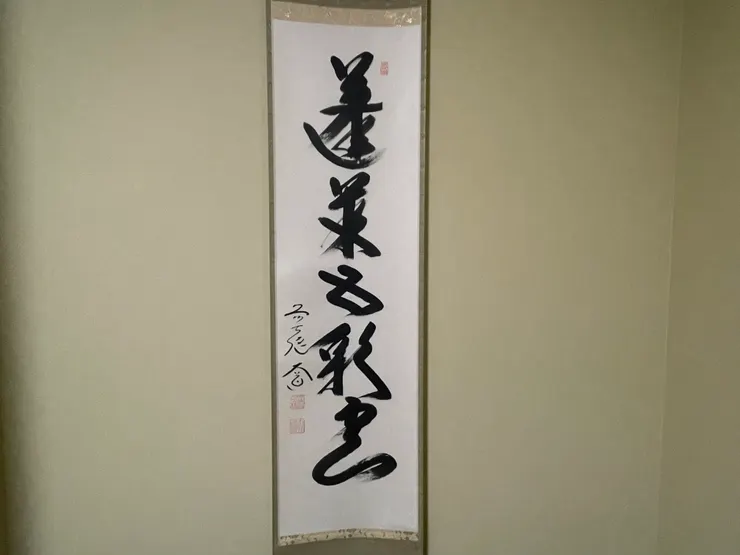 蓬莱五彩雲